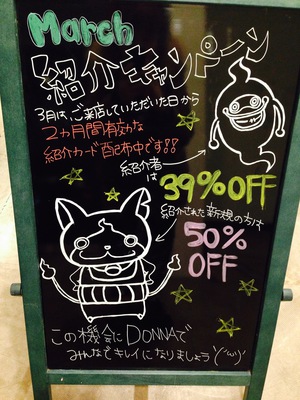 March
紹介キャンペーン
3月は、ご来店していただいた日から
2ヵ月間有効な
紹介カード配布中です!!
紹介者
は
39%OFF
紹介された新規の方は
50%
OFF
この機会にDONNAで
みんなでキレイになりましょう\(^ω^)/